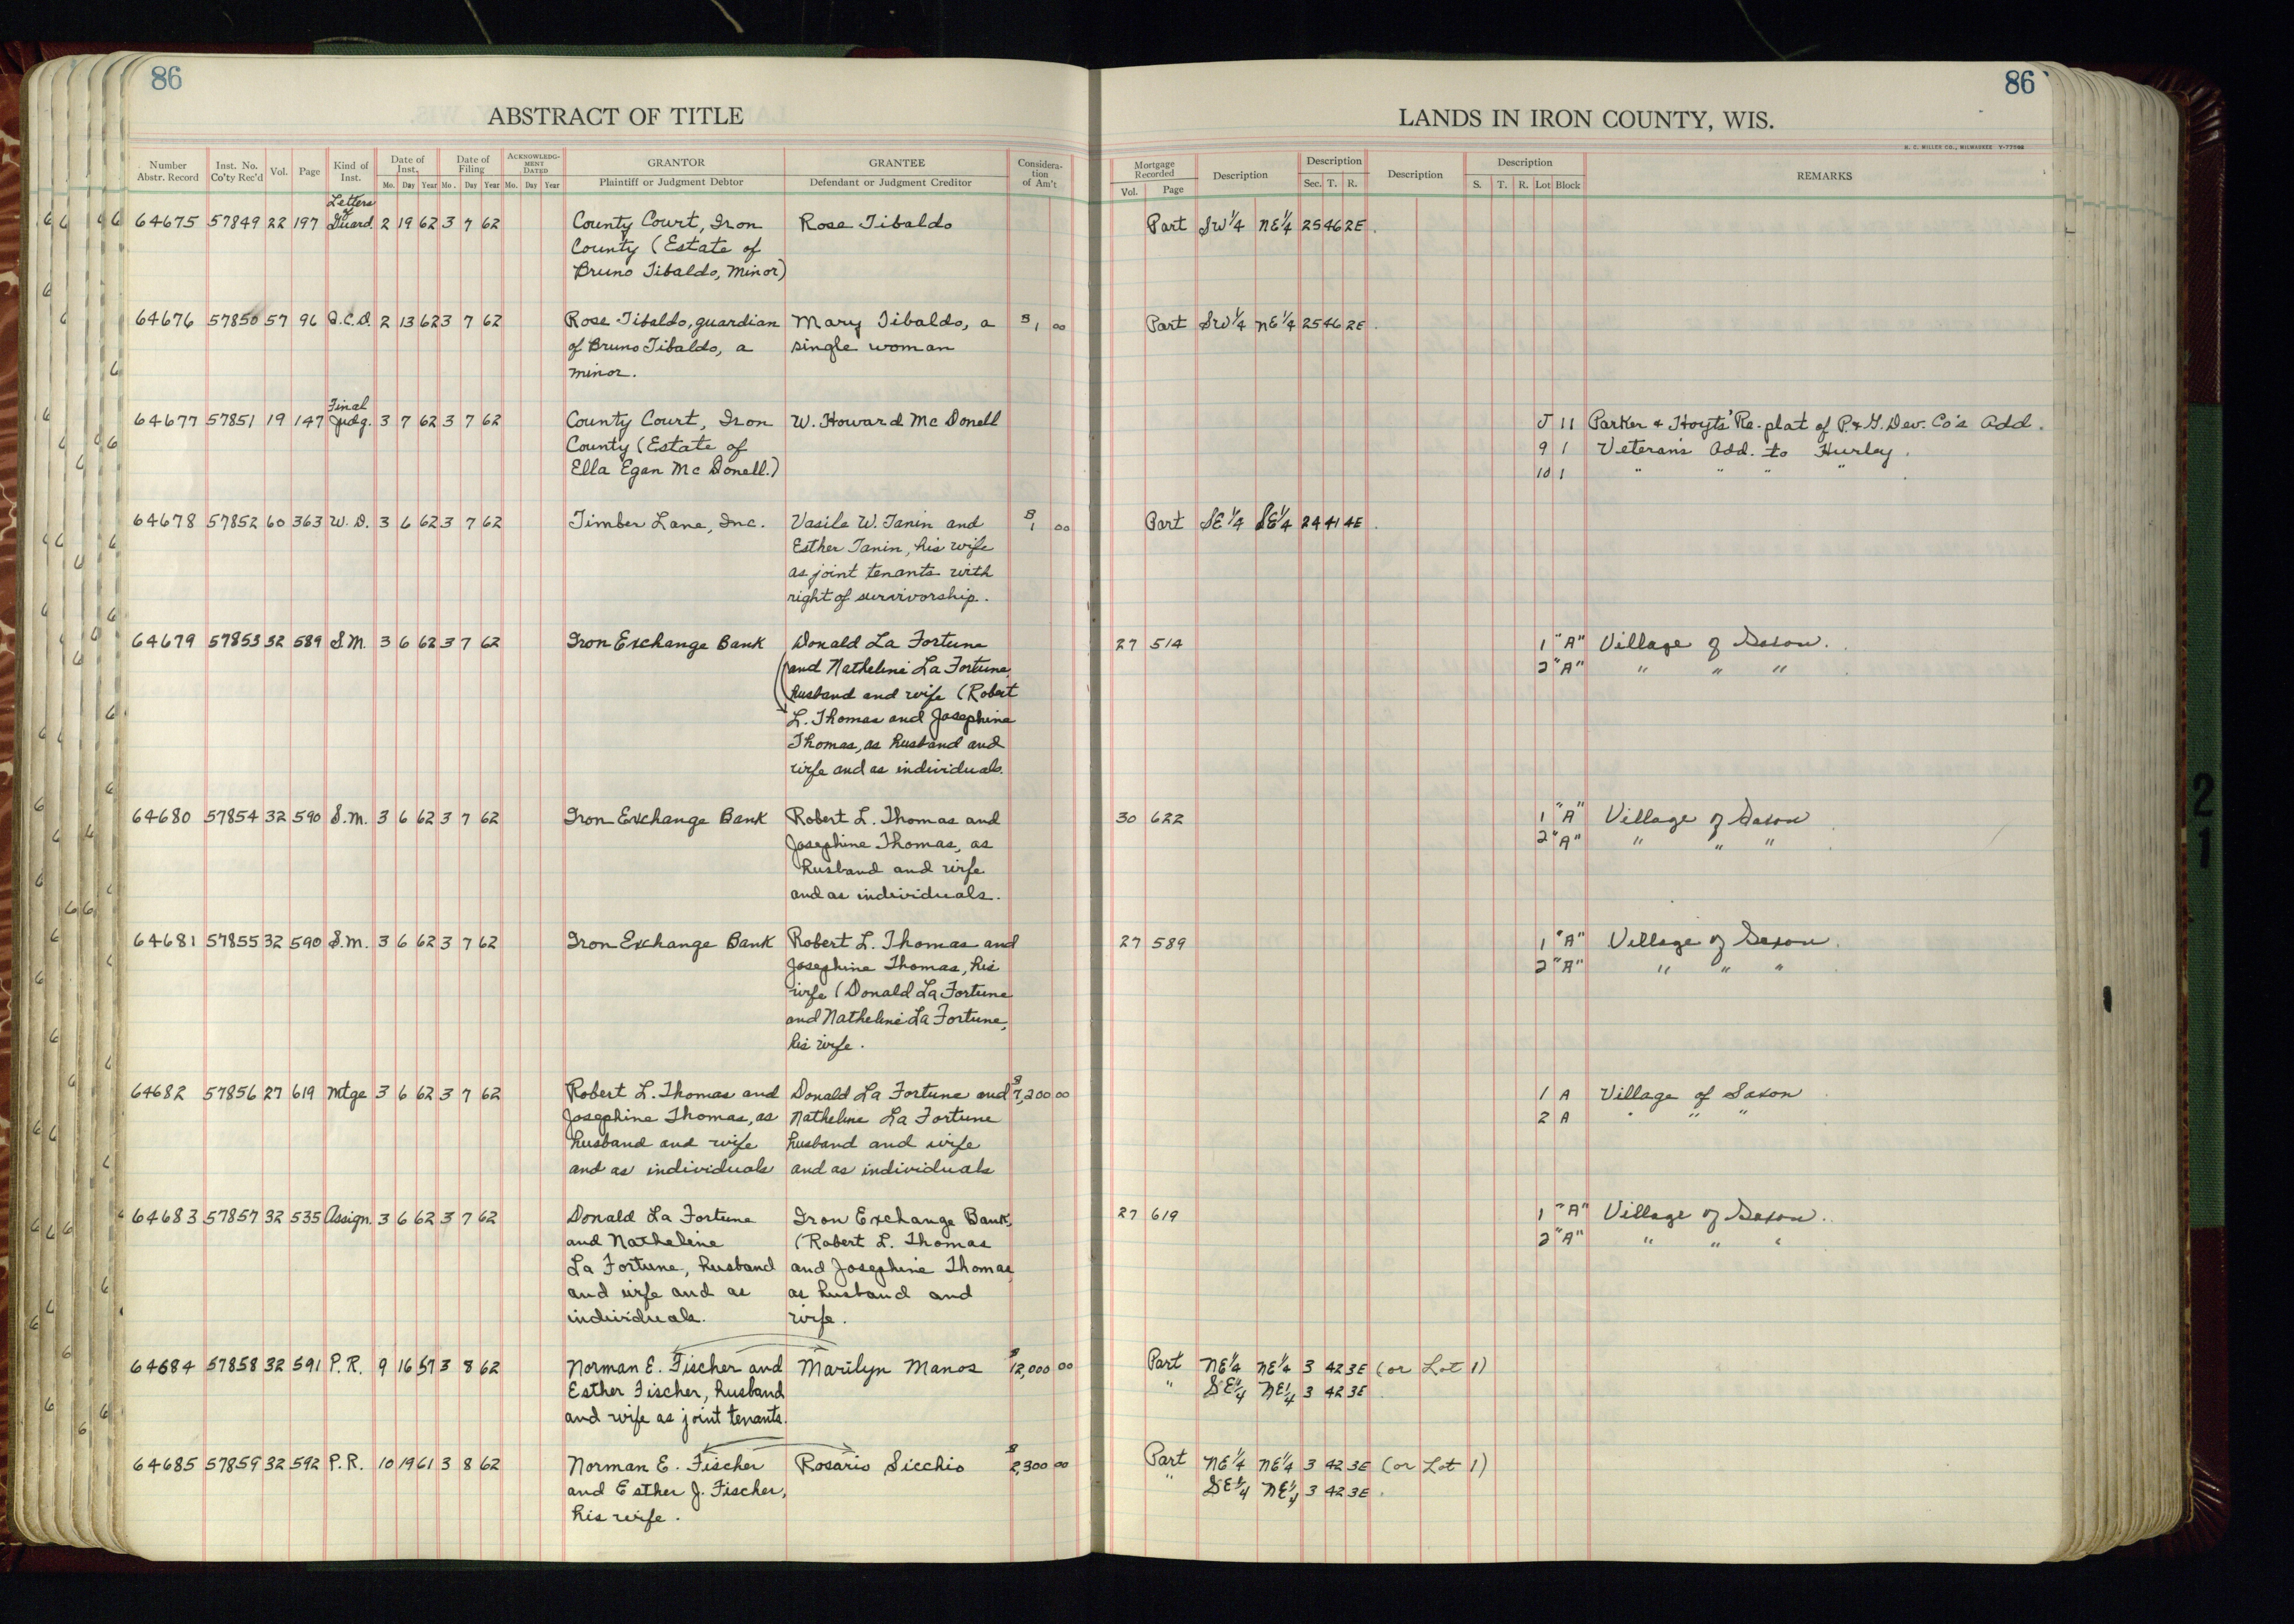 86
ABSTRACT OF TITLE
Number Abstr. Record Inst. No. Co'ty Rec'd Vol. Page Kind of Inst. Date of Inst. Mo. Day Year Date of Filing Mo. Day Year ACKNOWLEDGMENT DATED Mo. Day Year GRANTOR Plaintiff or Judgment Debtor GRANTEE Defendant or Judgment Creditor Consideration of Am't
Letters of
64675 57849 22 197 Guard. 2 19 62 3 7 62 County Court, Iron Rose Tibaldo
County (Estate of
Bruno Tibaldo, Minor)
64676 57850 57 96 Q.C.D. 2 13 62 3 7 62 Rose Tibaldo, guardian Mary Tibaldo, a $1 00
of Bruno Tibaldo, a single woman
minor.
Final
64677 57851 19 147 Judg. 3 7 62 3 7 62 County Court, Iron W. Howard McDonell
County (Estate of
Ella Egan McDonell.)
64678 57852 60 363 W.D. 3 6 62 3 7 62 Timber Lane, Inc. Vasile W. Tanin and $1 00
Esther Tanin, his wife
as joint tenants with
right of survivorship.
64679 57853 32 589 S.M. 3 6 62 3 7 62 Iron Exchange Bank Donald La Fortune
and Natheline La Fortune,
husband and wife (Robert
L. Thomas and Josephine
Thomas, as husband and
wife and as individuals.
64680 57854 32 590 S.M. 3 6 62 3 7 62 Iron Exchange Bank Robert L. Thomas and
Josephine Thomas, as
husband and wife
and as individuals.
64681 57855 32 590 S.M. 3 6 62 3 7 62 Iron Exchange Bank Robert L. Thomas and
Josephine Thomas, his
wife (Donald La Fortune
and Natheline La Fortune,
his wife.
64682 57856 27 619 Mtge 3 6 62 3 7 62 Robert L. Thomas and Donald La Fortune and $7,200 00
Josephine Thomas, as Natheline La Fortune
husband and wife husband and wife
and as individuals and as individuals
64683 57857 32 535 Assign. 3 6 62 3 7 62 Donald La Fortune Iron Exchange Bank,
and Natheline (Robert L. Thomas
La Fortune, husband and Josephine Thomas,
and wife and as as husband and
individuals. wife.
64684 57858 32 591 P.R. 9 16 57 3 8 62 Norman E. Fischer and Marilyn Manos $12,000 00
Esther Fischer, husband
and wife as joint tenants.
64685 57859 32 592 P.R. 10 19 61 3 8 62 Norman E. Fischer Rosario Sicchio $2,300 00
and Esther J. Fischer,
his wife.
86
LANDS IN IRON COUNTY, WIS.
H. C. MILLER CO., MILWAUKEE
Mortgage Recorded Vol. Page Description Description Sec. T. R. Description Description S. T. R. Lot Block REMARKS
Part SW¼ NE¼ 25 46 2E.
Part SW¼ NE¼ 25 46 2E.
J 11 Parker & Hoyts' Re-plat of P.&G. Dev. Co's Add.
9 1 Veteran's Add. to Hurley.
10 1 " " " "
Part SE¼ SE¼ 24 41 4E.
27 514 1 "A" Village of Saxon.
2 "A" " " "
30 622 1 "A" Village of Saxon
2 "A" " " "
27 589 1 "A" Village of Saxon.
2 "A" " " "
1 A Village of Saxon
2 A " " "
27 619 1 "A" Village of Saxon.
2 "A" " " "
Part NE¼ NE¼ 3 42 3E (or Lot 1)
" SE¼ NE¼ 3 42 3E.
Part NE¼ NE¼ 3 42 3E (or Lot 1)
" SE¼ NE¼ 3 42 3E.
21